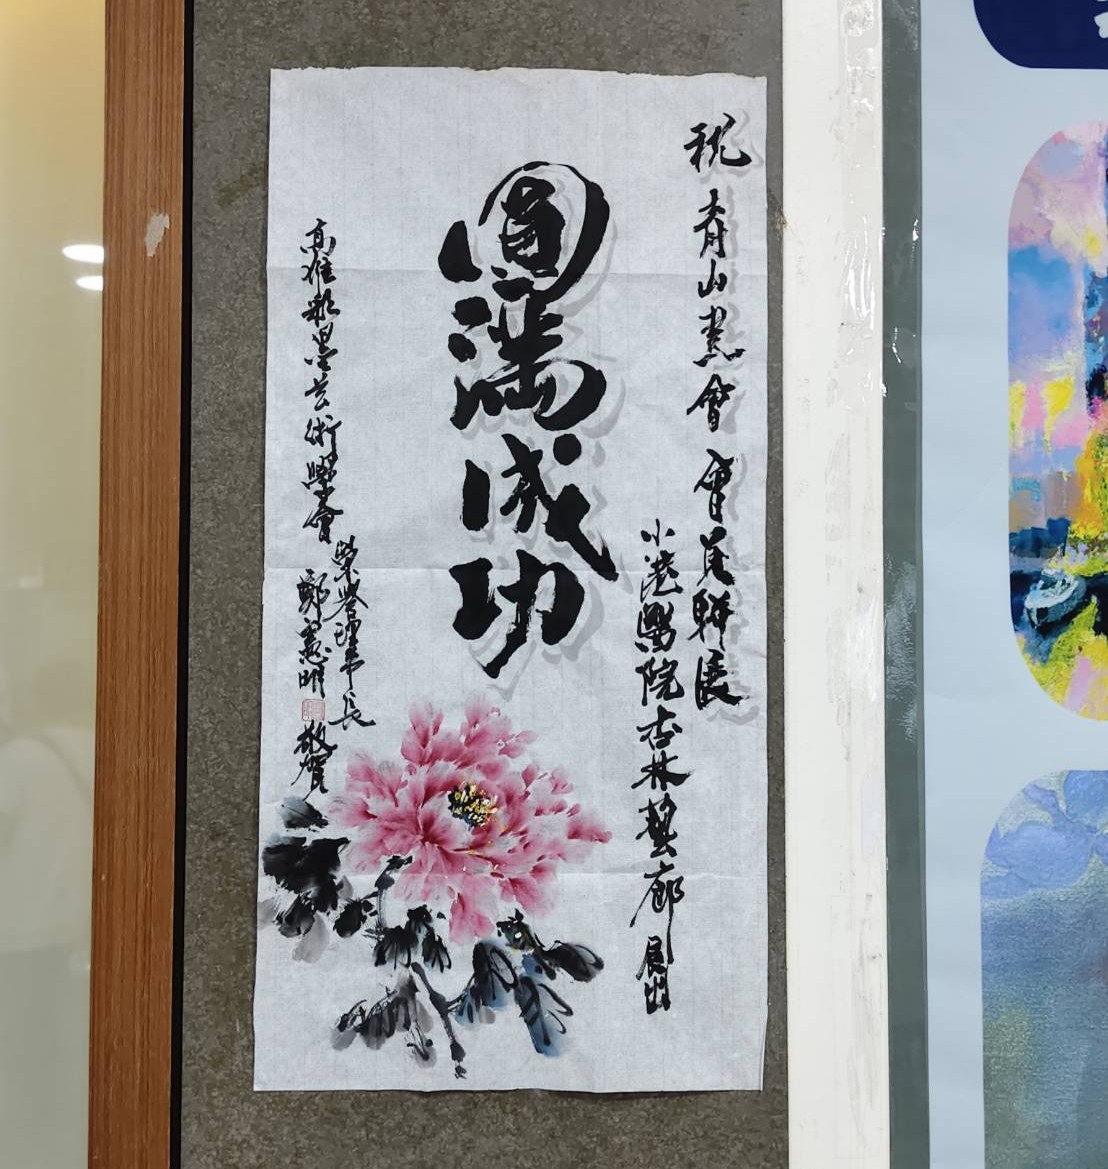 祝 青山畫會 會員聯展
小港醫院杏林藝廊 展出
圓滿成功
高雄彩墨艺術學會
榮譽理事長
鄭憲明 敬賀